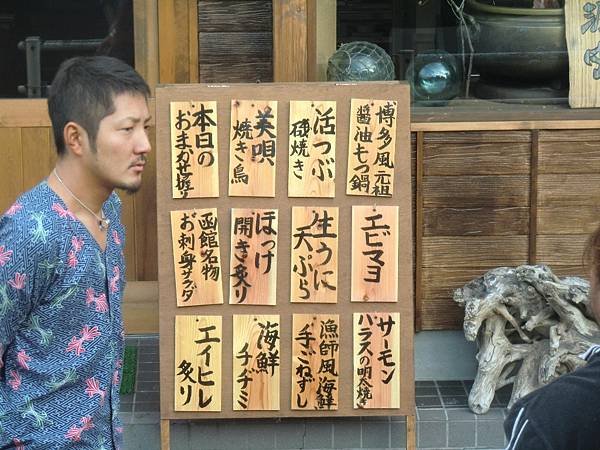 博多風元祖
醤油もつ鍋
活つぶ
磯焼き
美唄
焼き鳥
本日の
おまかせ握り
エビマヨ
生うに
天ぷら
ほっけ
開き炙り
函館名物
お刺身サラダ
サーモン
ハラスの明太焼き
漁師風海鮮
手ごねずし
海鮮
チヂミ
エイヒレ
炙り